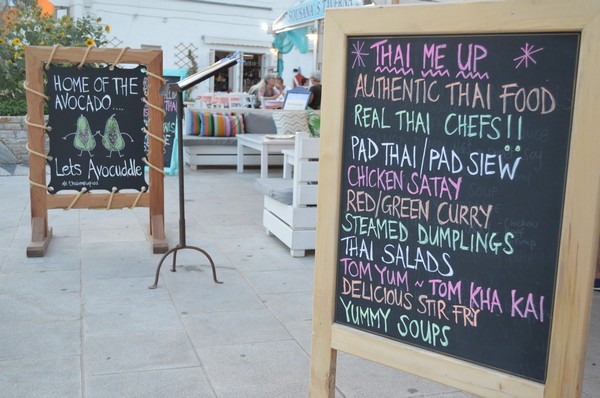 HOME OF THE
AVOCADO....
Lets Avocuddle
THAI ME UP
AUTHENTIC THAI FOOD
REAL THAI CHEFS!!
PAD THAI/PAD SIEW
CHICKEN SATAY
RED/GREEN CURRY
STEAMED DUMPLINGS
THAI SALADS
TOM YUM ~ TOM KHA KAI
DELICIOUS STIR FRY
YUMMY SOUPS